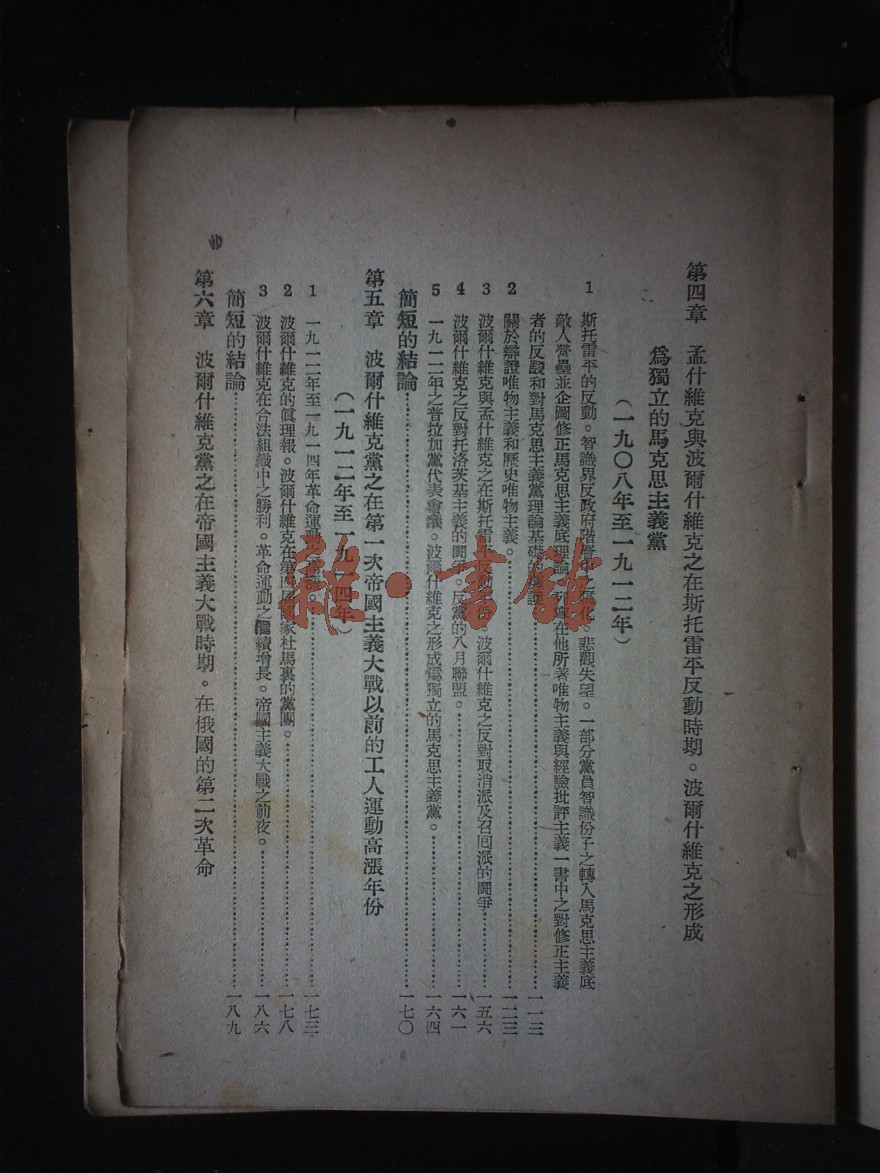 第四章　孟什維克與波爾什維克之在斯托雷平反動時期。波爾什維克之形成
爲獨立的馬克思主義黨
（一九〇八年至一九一二年）
1　斯托雷平的反動。智識界反政府階層中之腐化。悲觀失望。一部分黨員智識份子之轉入馬克思主義底
敵人營壘並企圖修正馬克思主義底理論。列寧在他所著唯物主義與經驗批評主義一書中之對修正主義
者的反駁和對馬克思主義黨理論基礎的……一一三
2　關於辯證唯物主義和歷史唯物主義。……一二三
3　波爾什維克與孟什維克之在斯托雷平反動年份。波爾什維克之反對取消派及召回派的鬪爭……一五六
4　波爾什維克之反對托洛茨基主義的鬪爭。反黨的八月聯盟。……一六一
5　一九一二年之普拉加黨代表會議。波爾什維克之形成爲獨立的馬克思主義黨。……一六四
簡短的結論……一七〇
第五章　波爾什維克黨之在第一次帝國主義大戰以前的工人運動高漲年份
（一九一二年至一九一四年）
1　一九一二年至一九一四年革命運動之高漲。……一七三
2　波爾什維克的眞理報。波爾什維克在第四屆國家杜馬裏的黨團。……一七八
3　波爾什維克在合法組織中之勝利。革命運動之繼續增長。帝國主義大戰之前夜。……一八六
簡短的結論……一八九
第六章　波爾什維克黨之在帝國主義大戰時期。在俄國的第二次革命
雜·書館